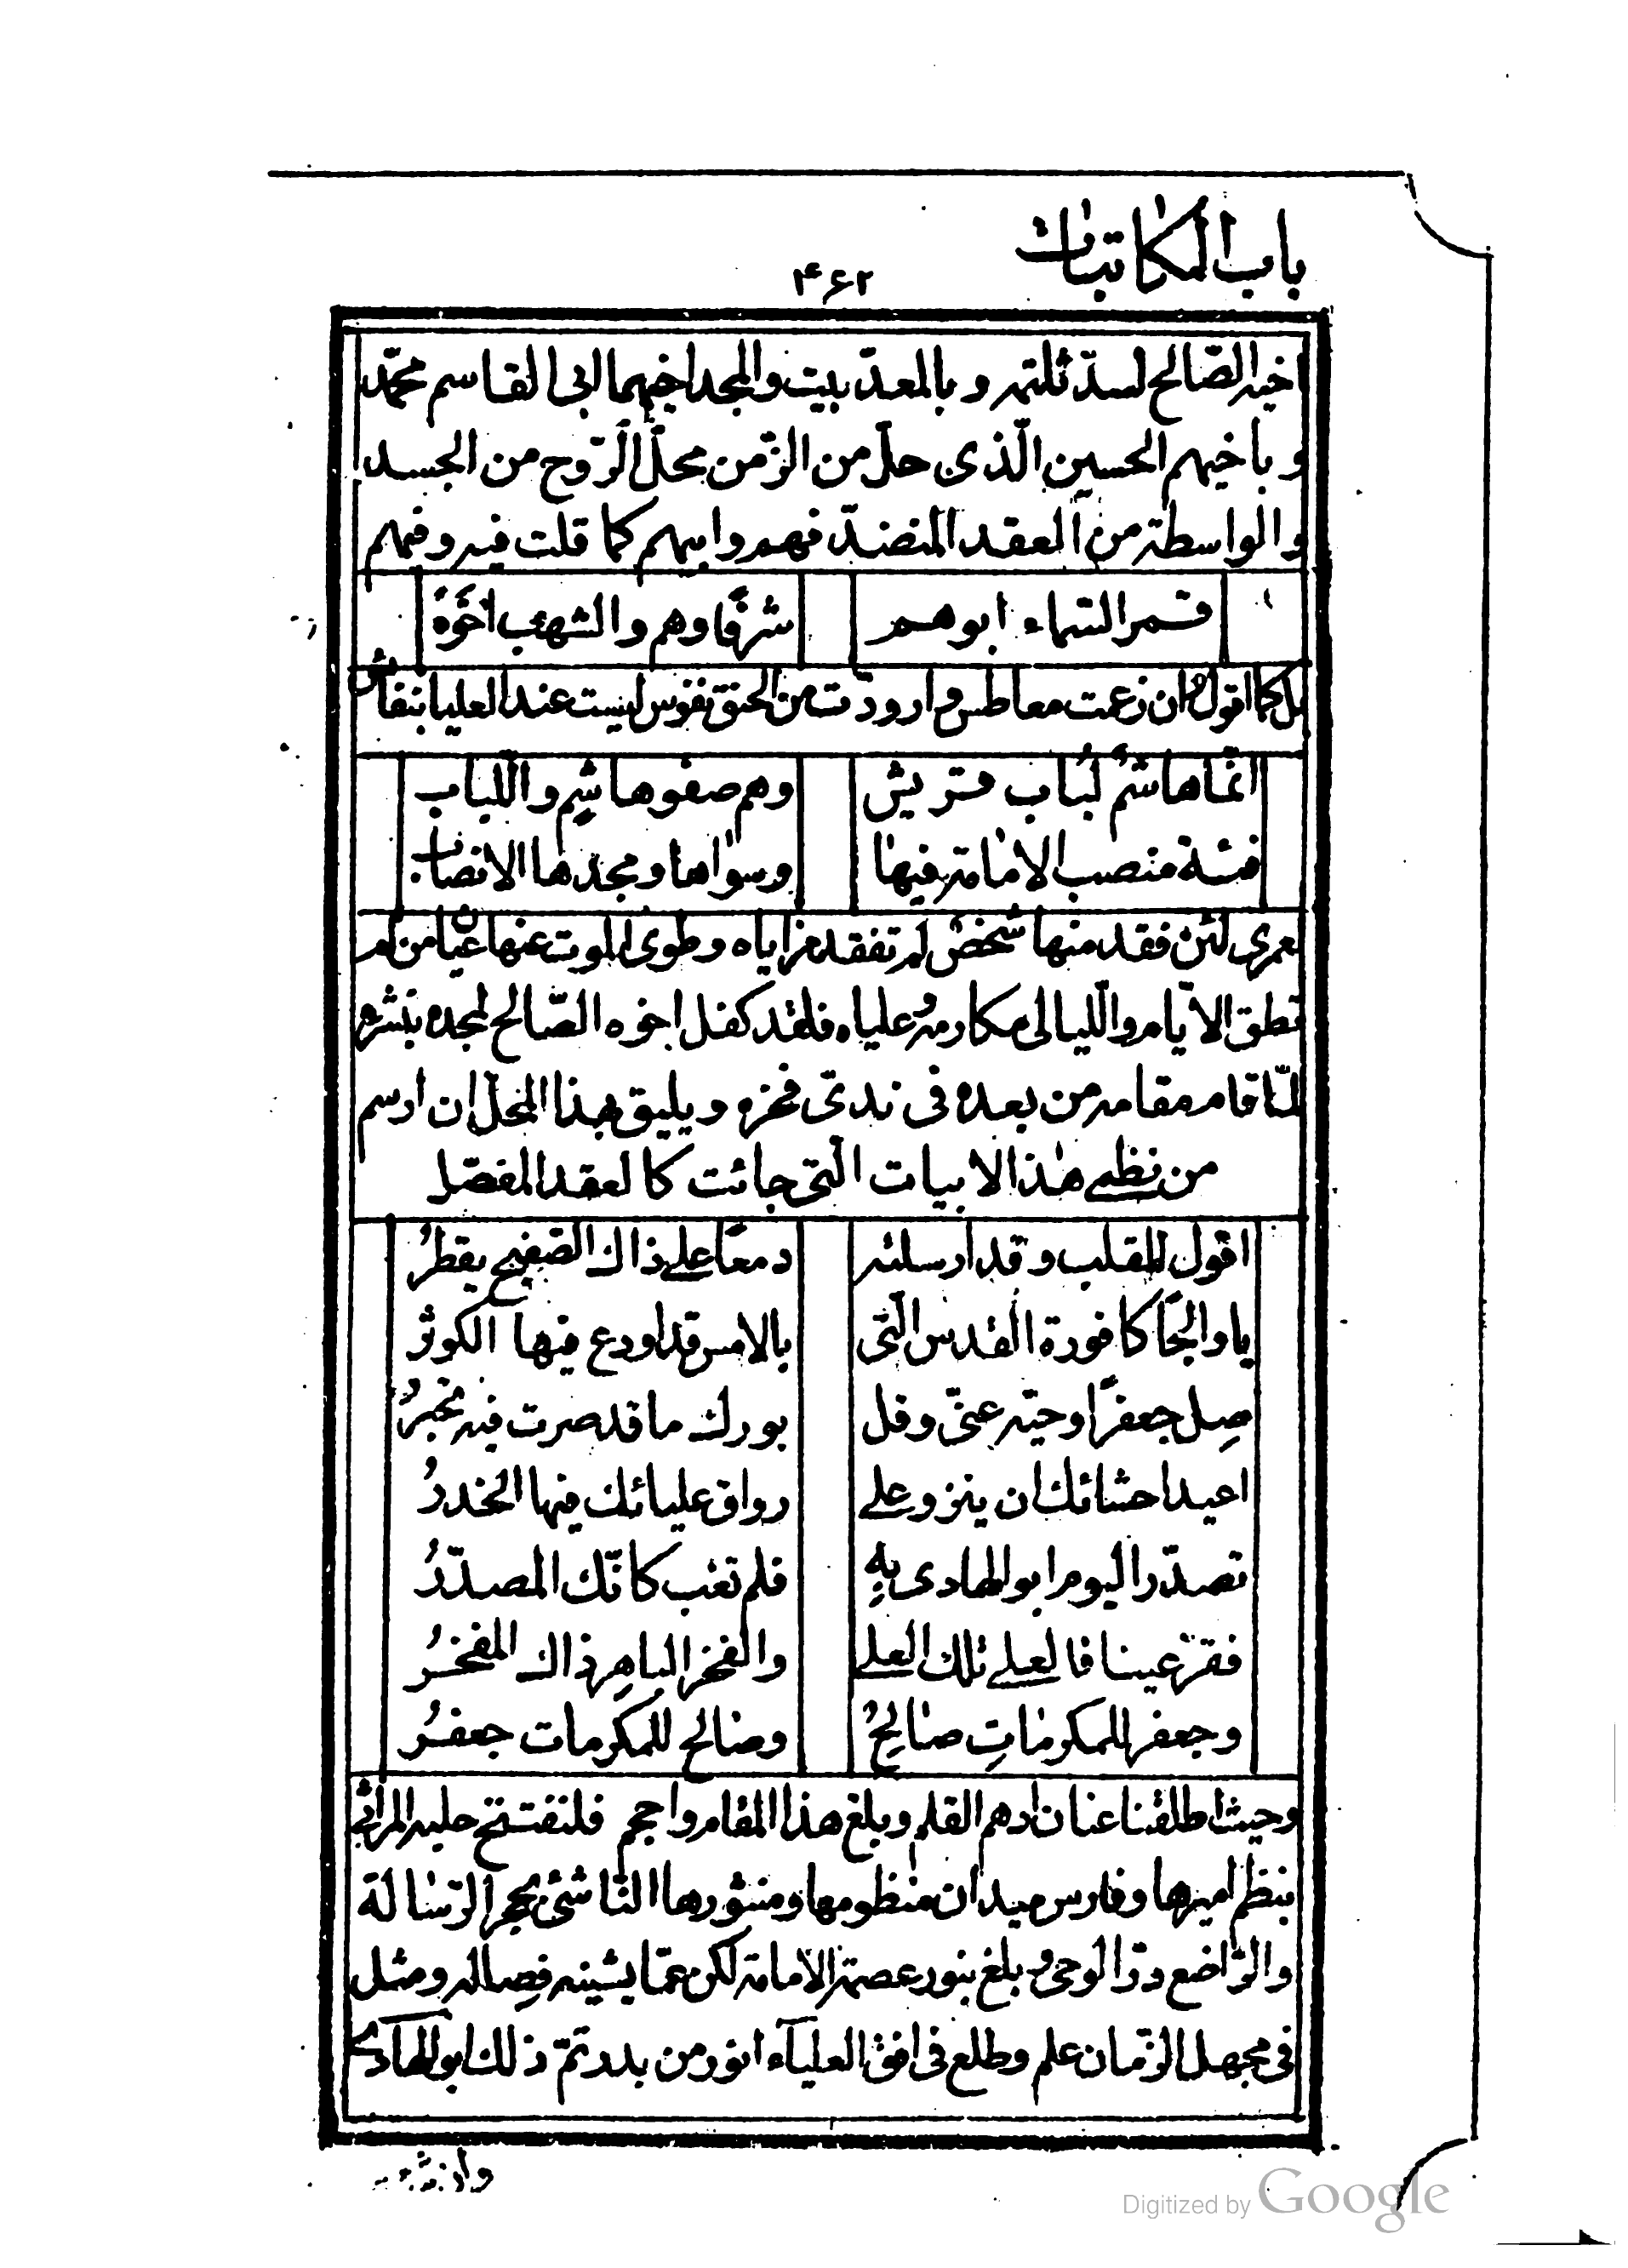 باب المکاتبات
۴۶۲
اخیه الصّالح لسدّ ثلمته و بالمعدّ بیت والمجد اخیهما ابی القاسم محمّد
و باخیهم الحسین الّذی حلّ من الزّمن محلّ الرّوح من الجسد
و الواسطة من العقد المنضدّ فهم وابیهم کما قلت فیه وفیهم
قمر السّماء ابوهم شرفًا وهم والشهب اخوَةٌ
بل کما اقول وان زعمت معاطس وارودت من الحنق نفوس لیست عند العلیا بنفائس
انّما هاشمٌ لُباب قریش وهم صفو هاشِم واللّباب
فئة منصب الامامة فیها وسواها ومجدها الانصاب
لعمری لئن فقد منها شخصٌ لم تفقد مزایاه وطوی الموت عنها عیّا من لم
تطق الایّام واللّیالی مکارمه وعلیاه فلقد کفل اخوه الصّالح لمجده بنشره
لمّا قام مقامه من بعده فی ندیّ فخره ویلیق بهذا المحلّ ان ارسم
من نظمی هذا الابیات الّتی جائت کالعقد المفصّل
اقول للقلب وقد ارسلته دمعًا علی ذاك الصّفیح یقطرُ
یا والجًا کافورة القدس الّتی بالامس قد اودع فیها الکوثر
صِل جعفرًا وحیّه عنّی وقل بورك ما قد صرت فیه تخبرُ
اعید احشائك ان ینزو علی رواق علیائك فیها الخدرُ
تصدّر الیوم ابو الهادی بِهِ فلم تغب کانّك المصدّرُ
فقرّ عینا فالعلی تلك العلی والفخر الباهِر ذاك المفخرُ
وجعفر للمکرماتِ صالِحٌ وصالح للمکرمات جعفرُ
وحیث اطلقنا عنان ادهم القلم وبلغ هذا المقام واحجم فلنفتتح حلبة المراثی
بنظم امیرها وفارس میدان منظومها ومنثورها النّاشئ بحجر الرّسالة
والرّاضع درّ الوحی وبلغ بنور عصمة الامامة لکن عمّا یشینه فِصاله ومثل
فی مجهل الزّمان علم وطلع فی افق العلیآء انور من بدر تمّ ذلك ابو الهادی